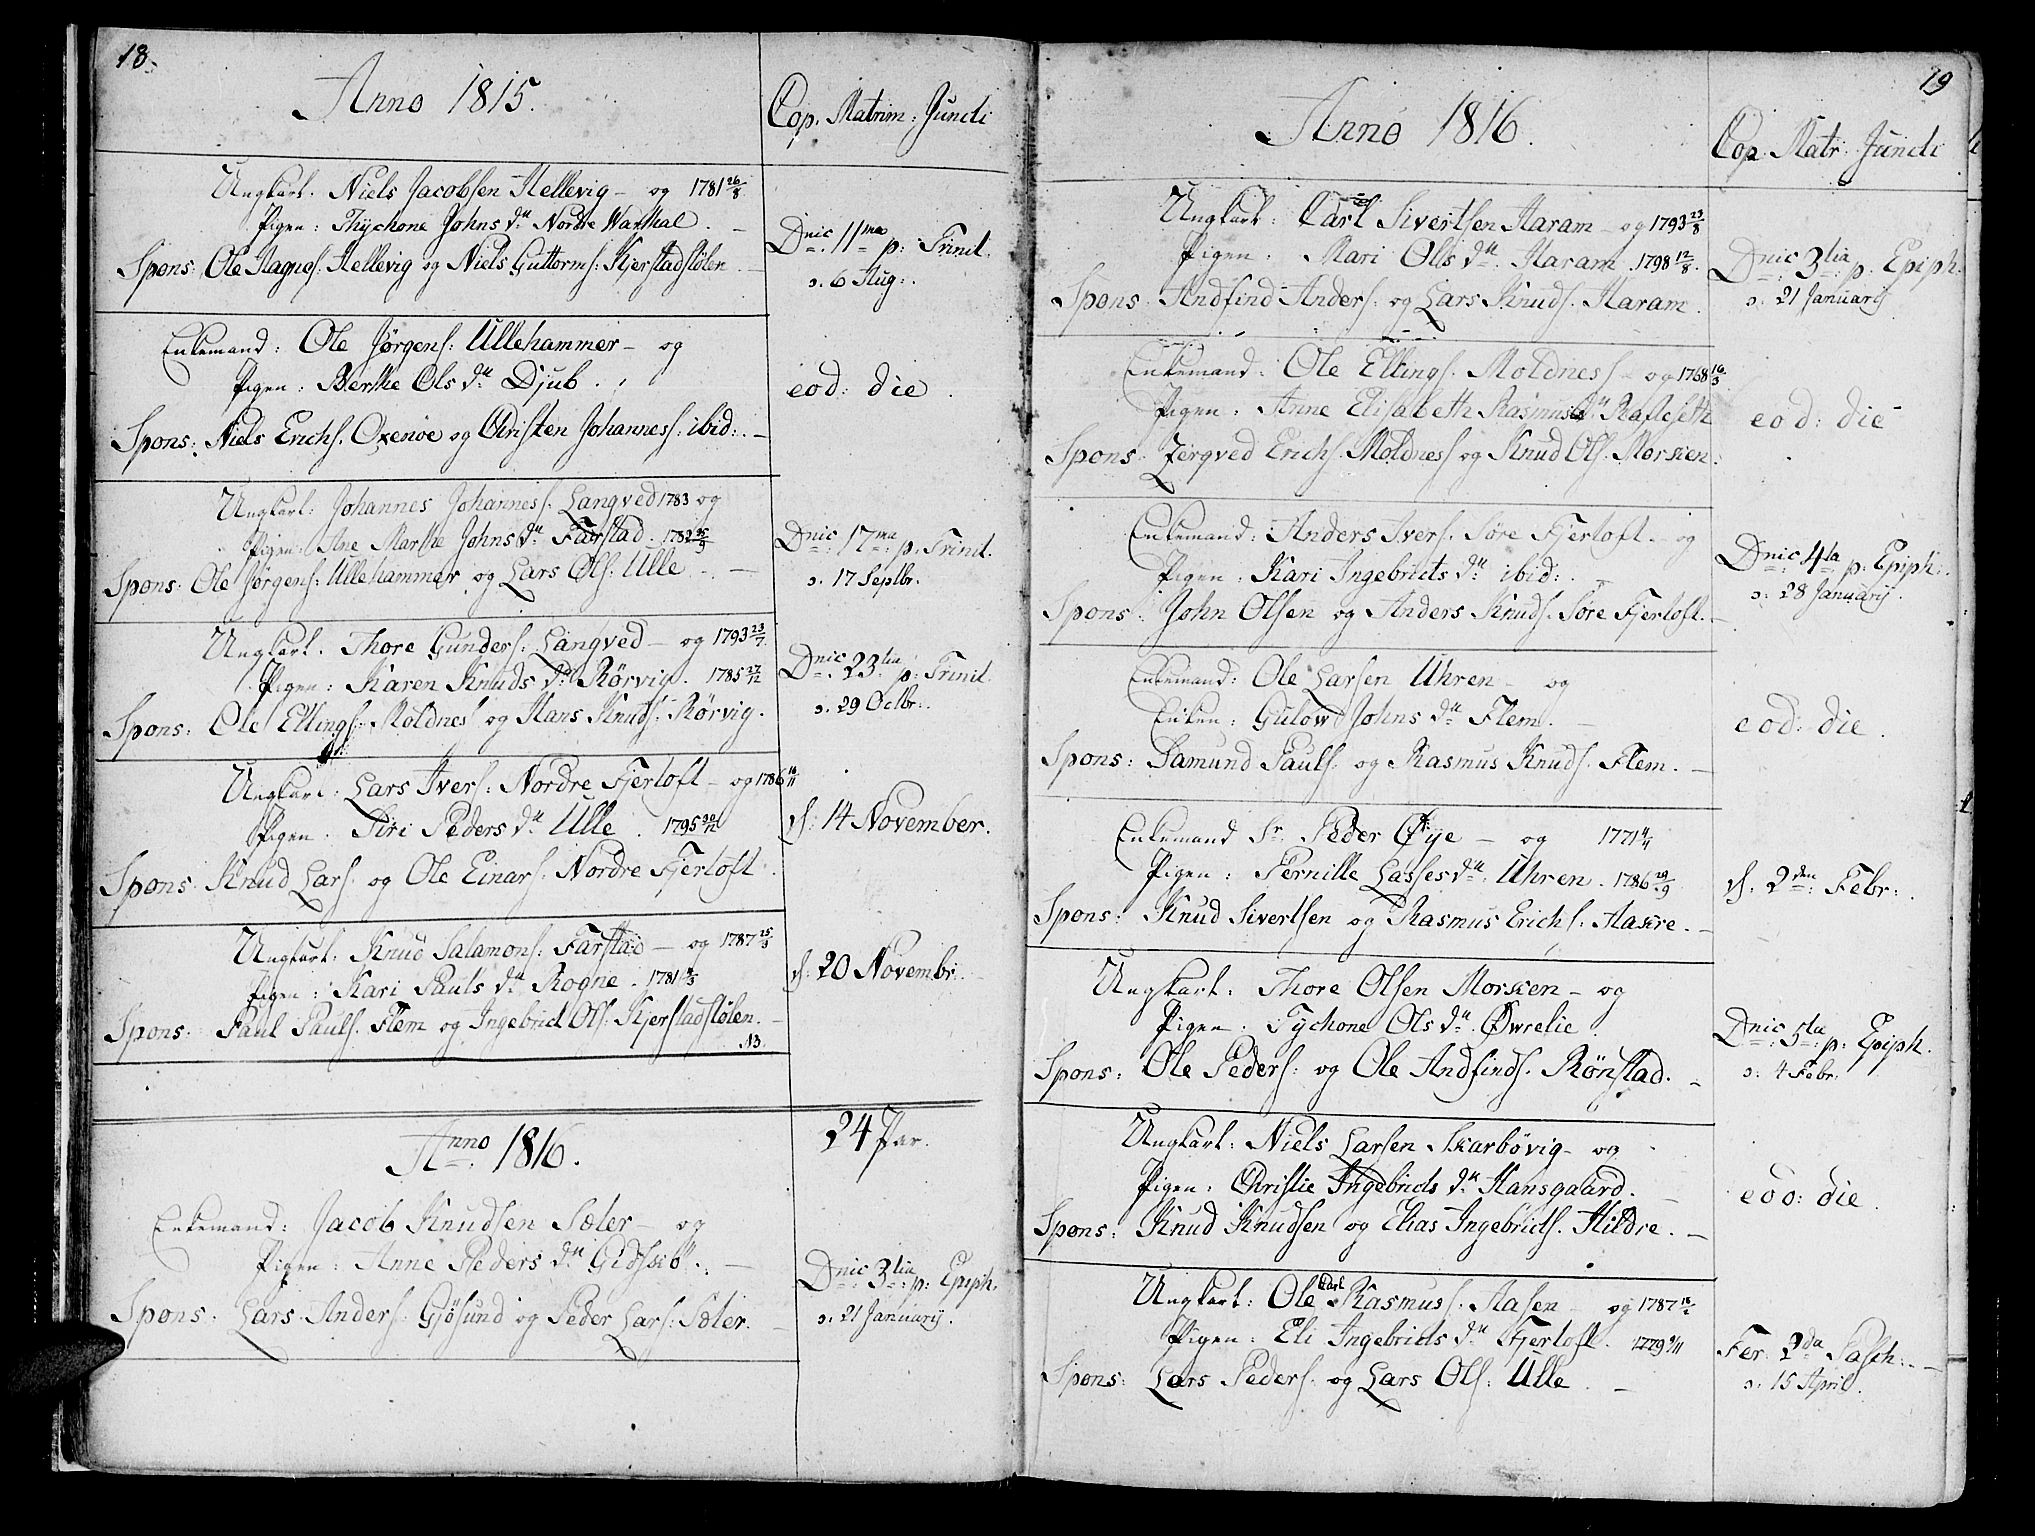 18.
Anno 1815.
Cop. Matrim: Juncti
Ungkarl. Niels Jacobsen Hellevig - og 1781 26/8
Pigen: Thychone Johns dtr Nordre Warthal. -
Spons: Ole Magnes: Hellevig og Niels Guttorms: Kjerstadstölen
Dnic: 11ma p: Trinit.
ↄ: 6 Aug:.
Enkemand: Ole Jørgens: Ullehammer - og
Pigen: Berthe Ols dtr Djub.
Spons: Niels Erichs. Oxenöe og Christen Johannes: ibid:. -
eod: die.
Ungkarl: Johannes Johannes. Langved 1783 og
Pigen: Ane Marthe Johns dtr Farstad. 1782 25/9
Spons: Ole Jørgens: Ullehammer og Lars Ols: Ulle -
Dnic: 17ma p: Trinit.
ↄ. 17 Septbr.
Ungkarl. Thore Gunders: Langved - og 1793 23/7
Pigen: Karen Knuds dtr Rörvig. 1785 27/12
Spons: Ole Ellings: Moldnes og Hans Knuds: Rörvig.
Dnic: 23tia p: Trinit.
ↄ. 29 Octbr:.
Ungkarl: Lars Ivers: Nordre Fjertoft - og 1786 18/11
Pigen. Siri Peders dtr Ulle. 1795 30/12
Spons: Knud Lars. og Ole Einars. Nordre Fjertoft.
d: 14 November.
Ungkarl: Knud Salamons: Farstad - og 1787 25/3
Pigen: Kari Pauls dtr Rogne. 1781 8/3
Spons: Paul Pauls. Flem og Ingebrict Ols. Kjerstadstölen. -
13.
d: 20 Novembr.
24 Par.
Anno 1816.
Enkemand: Jacob Knudsen Sæter - og
Pigen: Anne Peders dtr Gidskö. -
Spons: Lars Anders. Gjösund og Peder Lars: Sæter. -
Dnic: 3tia p: Epiph.
ↄ. 21 Januarij.
19
Anno 1816.
Cop. Matr: Juncti
Ungkarl: Carl Sivertsen Haram - og 1793 23/8
Pigen: Mari Ols dtr Haram. 1798 12/8.
Spons: Andfind Anders: og Lars Knuds. Haram.
Dnic: 3tia p: Epiph.
ↄ: 21 Januarij
Enkemand: Ole Ellings. Moldnes - og 1768 16/3
Pigen: Anne Elisabeth Rasmus dtr Rafteseth
Spons: Zerqved Erichs. Moldnes og Knud Ols. Morsken.
eod: die
Enkemand: Anders Ivers. Söre Fjertoft - og
Pigen: Kari Ingebricts dtr ibid:.
Spons: John Olsen og Anders Knuds. Söre Fjertoft. -
Dnic: 4ta p: Epiph:.
ↄ: 28 Januarij.
Enkemand: Ole Larsen Uhren - og
Enken: Gulow Johns dtr Flem. -
Spons: Samund Pauls. og Rasmus Knuds. Flem. -
eod: die.
Enkemand Sr. Peder Øye - og 1771 4/11
Pigen: Pernille Lasses dtr Uhren. 1786 29/9
Spons: Knud Sivertsen og Rasmus Erichs: Aakre. -
d: 2den Febr:.
Ungkarl: Thore Olsen Morsken - og
Pigen: Tychone Ols dtr Øvrelie.
Spons: Ole Peders: og Ole Andfinds. Rönstad. -
Dnic: 5ta p: Epiph.
ↄ. 4 Febr:
Ungkarl: Niels Larsen Skarbövig - og
Pigen: Christie Ingebricts dtr Hansgaard. -
Spons: Knud Knudsen og Elias Ingebricts. Hildre. -
eod: die.
Ungkarl: Ole Carl Rasmus. Aasen og 1787 18/2
Pigen: Eli Ingebricts dtr Fjertoft. 1779 9/11
Spons: Lars Peders. og Lars Ols: Ulle. -
Fer: 2da Pasch:. -
ↄ. 15 April.